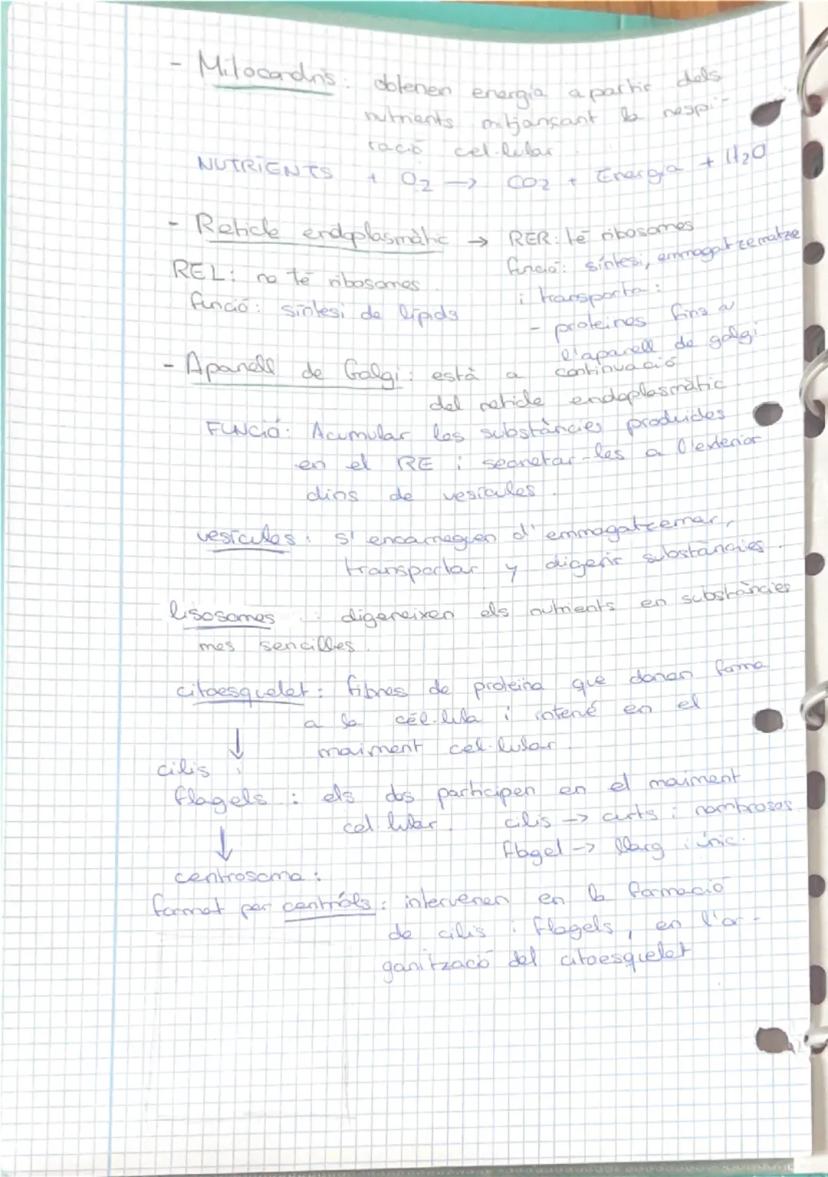 - Mitocondris: obtenen energia a partir dels
nutrients mitjansant la respi-
ració cel·lular
NUTRIENTS + O2 → CO2 + Energia + H2O
- Reticle endoplasmàtic → RER: té ribosomes
funció: síntesi, emmagatzematze
i transporta:
- proteines fins a
l'aparell de golgi
REL: no té ribosomes.
funció: síntesi de lípids
- Aparell de Golgi: està a continuació
del reticle endoplasmàtic
FUNCIÓ: Acumular les substàncies produides
en el RE i secretar-les a l'exterior
dins de vesícules.
vesícules: s'encarreguen d'emmagatzemar,
transportar y digerir substàncies.
lisosomes: digereixen els nutrients en substàncies
mes sencilles.
citoesquelet: fibres de proteina que donen forma
a la cèl·lula i intervé en el
moviment cel·lular
↓
cilis i
flagels: els dos participen en el moviment
cel·lular. cilis → curts i nombrosos
flagel → llarg i únic.
↓
centrosoma:
format per centríols: intervenen en la formació
de cilis i flagels, en l'or-
ganització del citoesquelet